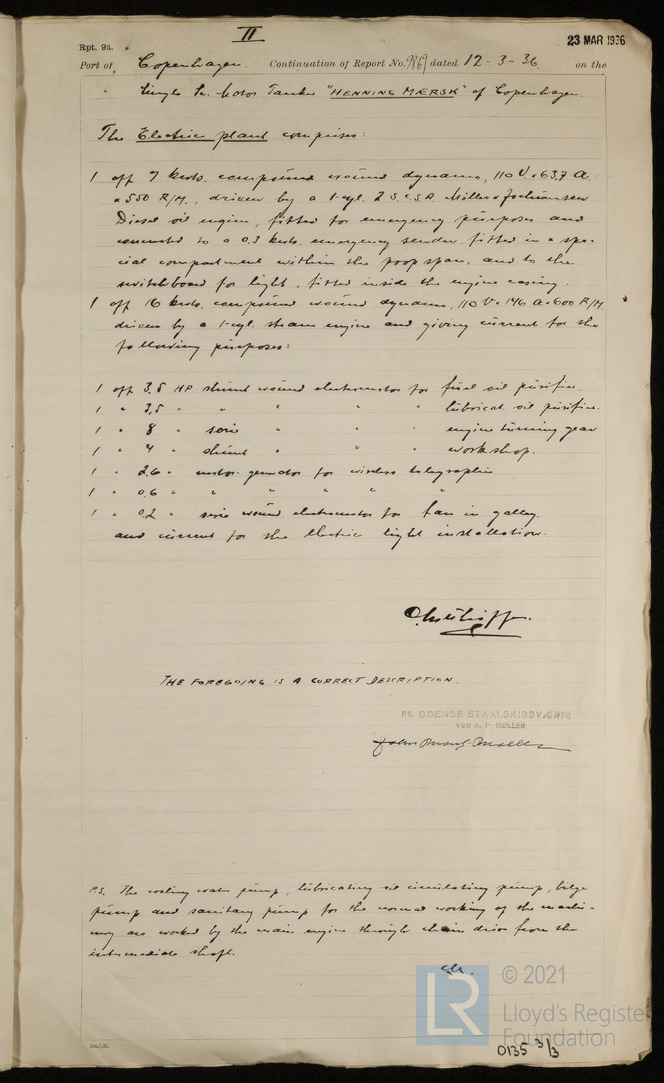 II
23 MAR 1936
Rpt. 9a.
Port of Copenhagen. Continuation of Report No. dated 12-3-36. on the
Single Sc. Motor Tanker "HENNING MÆRSK" of Copenhagen.
The Electric plant comprises:
1 off 7 kwts. compound wound dynamo, 110 V. 63,7 A.
× 550 R/M., driven by a 1-cyl. 2 S.C.S.A.
Diesel oil engine, fitted for emergency purposes and
connected to a 0.3 kwts. emergency sender fitted in a spe-
cial compartment within the poop span, and to the
switchboard for light, fitted inside the engine casing.
1 off 16 kwts. compound wound dynamo, 110 V. 146 A. 600 R/M.
driven by a 1-cyl. steam engine and giving current for the
following purposes:
1 off 3,5 HP shunt wound electromotor for fuel oil purifier.
1 " 3,5 " " " " " lubricat. oil purifier.
1 " 8 " serie " " " engine turning gear
1 " 4 " shunt " " " workshop.
1 " 2,6 " motor-generator for wireless telegraphie
1 " 0,6 " " " " " "
1 " 0,2 " serie wound electromotor for fan in galley.
and current for the electric light installation.
THE FOREGOING IS A CORRECT DESCRIPTION.
ODENSE STAALSKIBSVÆRFT
VED A. P. MØLLER
P.S. The cooling water pump, lubricating oil circulating pump, bilge
pump and sanitary pump for the normal working of the machi-
nery are worked by the main engine through chain drive from the
intermediate shaft.
© 2021
LR
Lloyd's Register
Foundation
0135 3/3